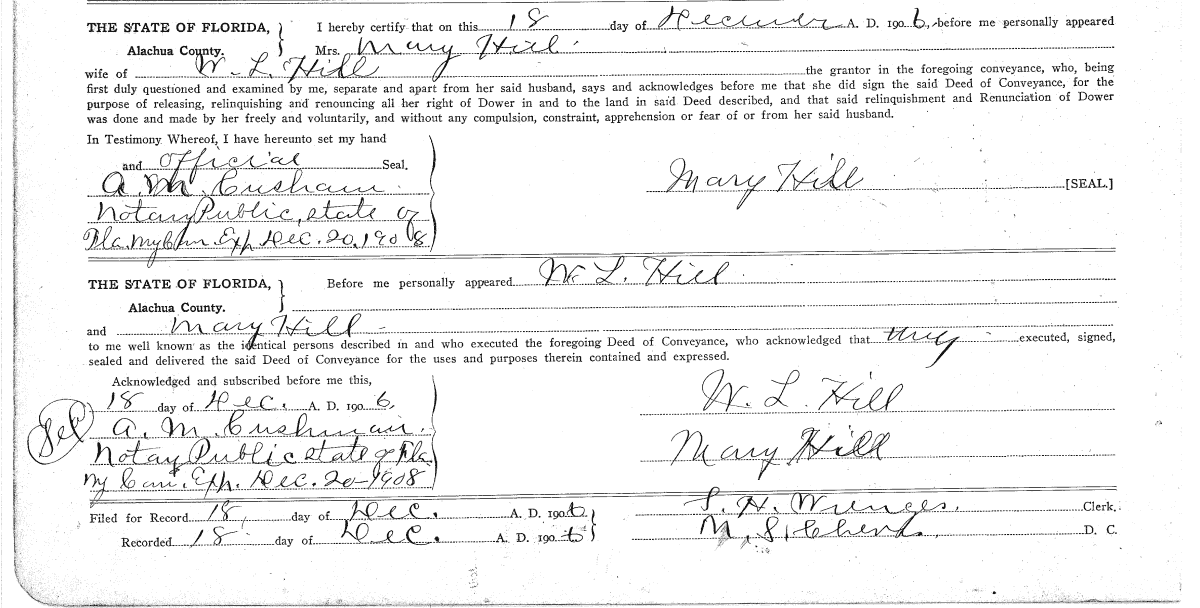 THE STATE OF FLORIDA, } I hereby certify that on this 18 day of December A. D. 1906, before me personally appeared
Alachua County. Mrs. Mary Hill
wife of W. L. Hill the grantor in the foregoing conveyance, who, being
first duly questioned and examined by me, separate and apart from her said husband, says and acknowledges before me that she did sign the said Deed of Conveyance, for the
purpose of releasing, relinquishing and renouncing all her right of Dower in and to the land in said Deed described, and that said relinquishment and Renunciation of Dower
was done and made by her freely and voluntarily, and without any compulsion, constraint, apprehension or fear of or from her said husband.
In Testimony Whereof, I have hereunto set my hand
and official Seal.
A. M. Cushman
Mary Hill [SEAL.]
Notary Public, state of
Fla. My Com. Exp. Dec. 20, 1908
THE STATE OF FLORIDA, } Before me personally appeared W. L. Hill
Alachua County.
and Mary Hill
to me well known as the identical persons described in and who executed the foregoing Deed of Conveyance, who acknowledged that they executed, signed,
sealed and delivered the said Deed of Conveyance for the uses and purposes therein contained and expressed.
Acknowledged and subscribed before me this,
18 day of Dec. A. D. 1906,
W. L. Hill
A. M. Cushman.
Notary Public state of Fla.
Mary Hill
My Com. Exp. Dec. 20-1908
Filed for Record 18, day of Dec. A. D. 1906 } S. H. Wienges. Clerk.
Recorded 18 day of Dec. A. D. 1906 D. C.